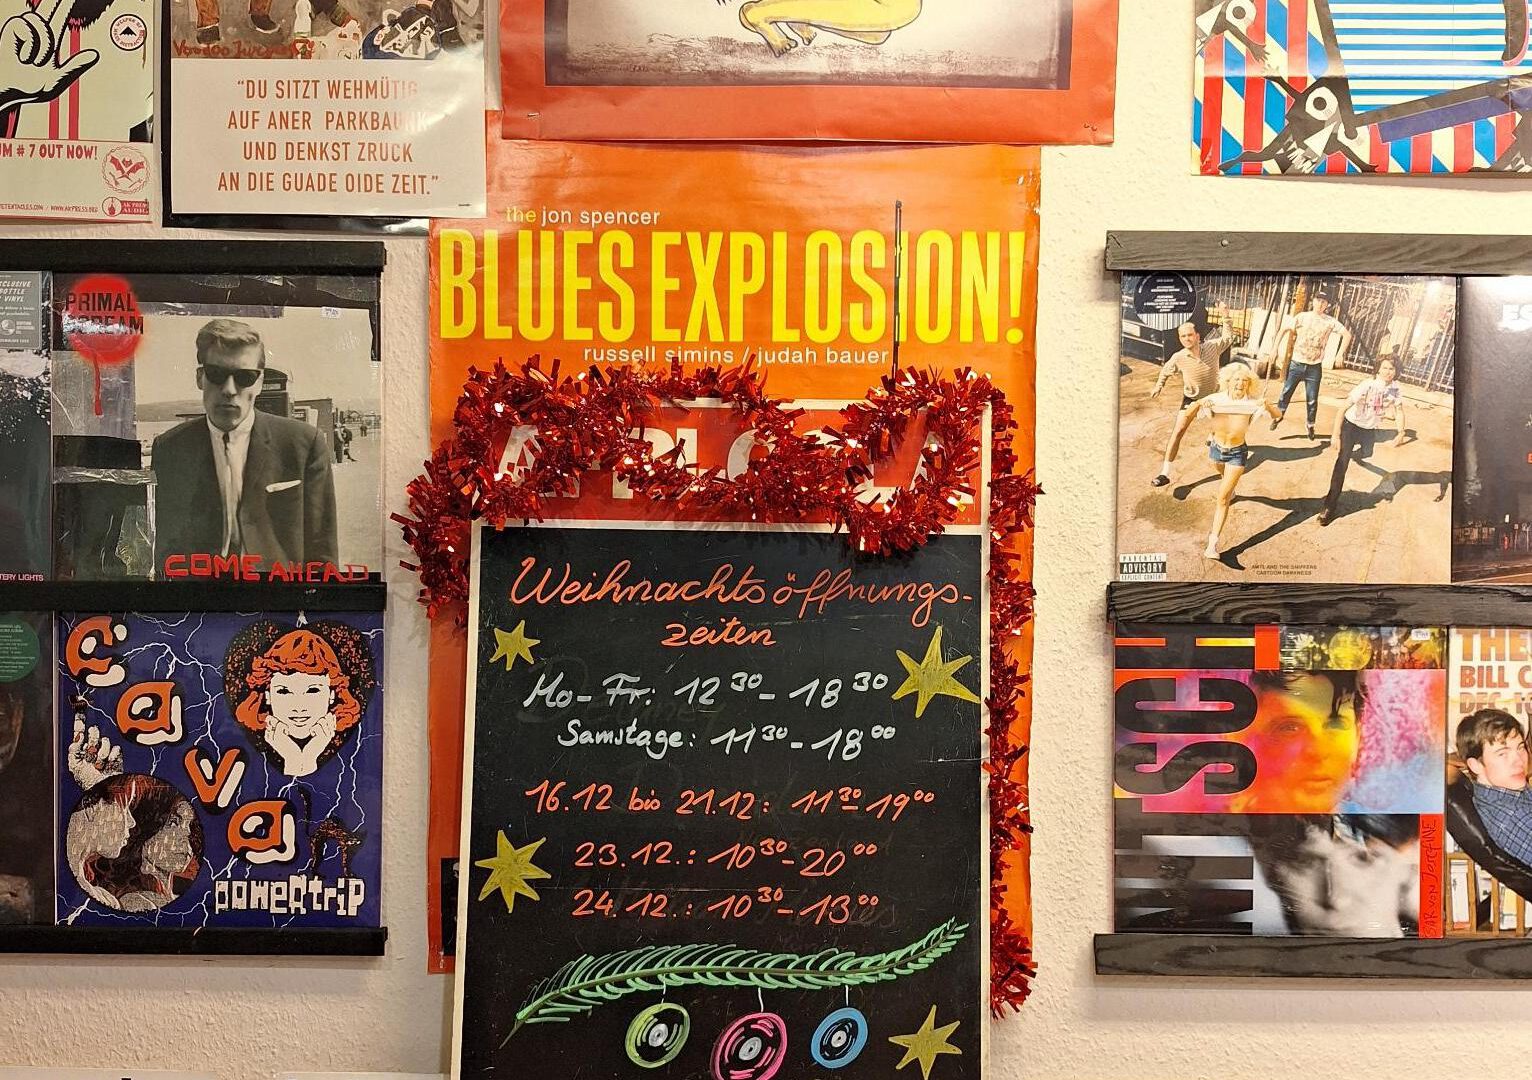 Voodoo Jürgens
"DU SITZT WEHMÜTIG
AUF ANER PARKBAUNK
UND DENKST ZRUCK
AN DIE GUADE OIDE ZEIT."
UM # 7 OUT NOW!
AK PRESS
AUDIO
the jon spencer
BLUES EXPLOSION!
russell simins / judah bauer
PRIMAL
SCREAM
COME AHEAD
TERY LIGHTS
powertrip
Weihnachtsöffnungs-
zeiten
Mo-Fr: 12 30 - 18 30
Samstage: 11 30 - 18 00
16.12 bis 21.12: 11 30 - 19 00
23.12.: 10 30 - 20 00
24.12.: 10 30 - 13 00
PARENTAL
ADVISORY
EXPLICIT CONTENT
AMYL AND THE SNIFFERS
CARTOON DARKNESS
THE
BILL C
DEC